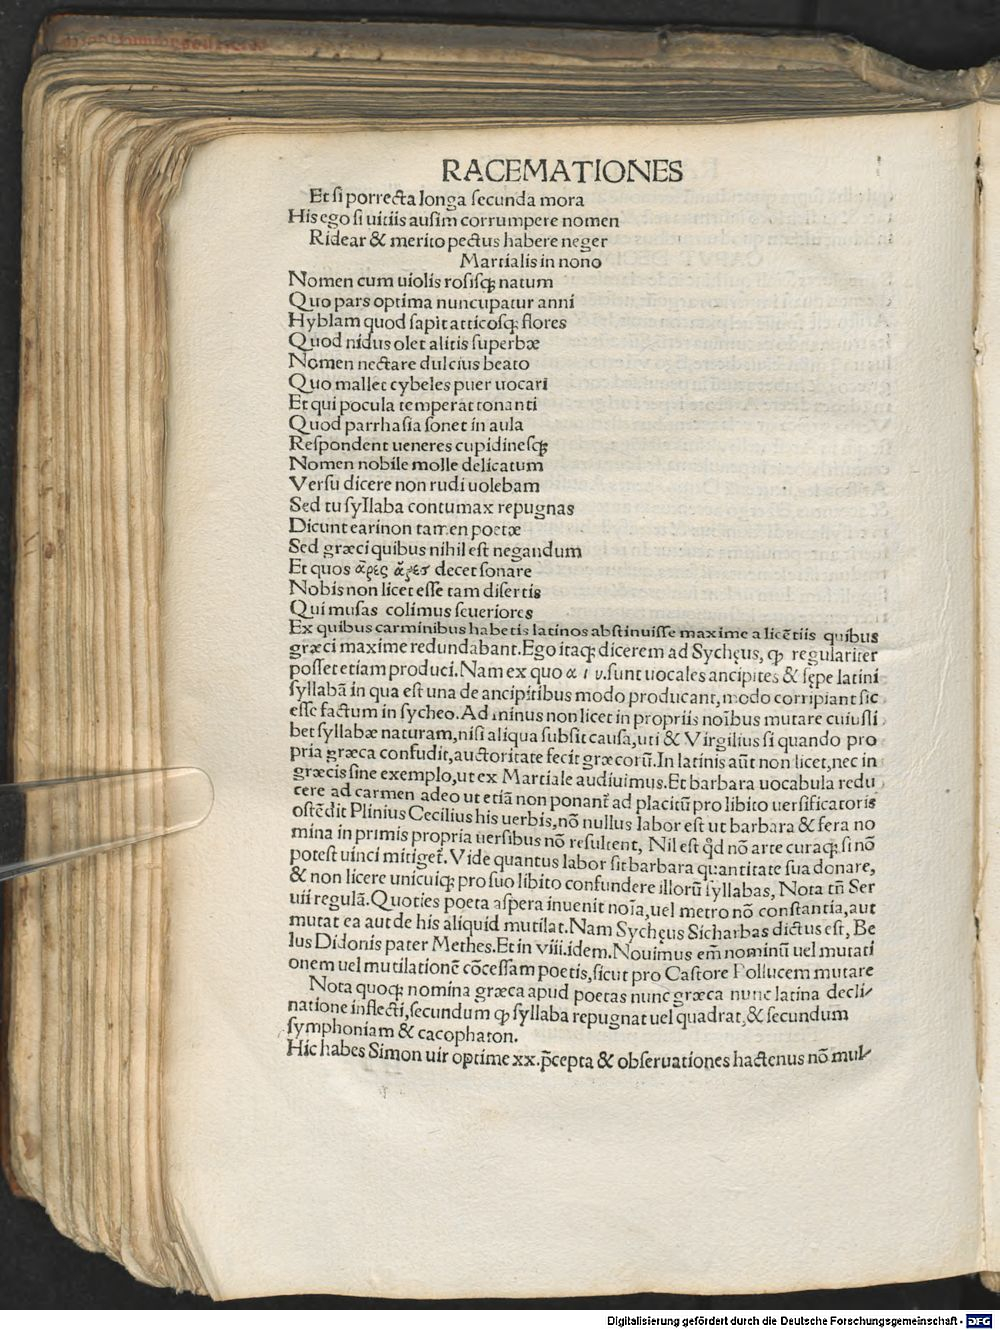 RACEMATIONES
Et si porrecta longa secunda mora
His ego si uitiis ausim corrumpere nomen
Ridear & merito pectus habere neger
Martialis in nono
Nomen cum uiolis rosisqꝫ natum
Quo pars optima nuncupatur anni
Hyblam quod sapit atticosqꝫ flores
Quod nidus olet alitis superbæ
Nomen nectare dulcius beato
Quo mallet cybeles puer uocari
Et qui pocula temperat tonanti
Quod parrhasia sonet in aula
Respondent ueneres cupidinesqꝫ
Nomen nobile molle delicatum
Versu dicere non rudi uolebam
Sed tu syllaba contumax repugnas
Dicunt earinon tamen poetæ
Sed græci quibus nihil est negandum
Et quos ἆρες ἄρες decet sonare
Nobis non licet esse tam disertis
Qui musas colimus seueriores
Ex quibus carminibus habetis latinos abstinuisse maxime a licẽtiis quibus
græci maxime redundabant. Ego itaqꝫ dicerem ad Sychęus, ꝙ regulariter
posset etiam produci. Nam ex quo α ι υ. sunt uocales ancipites & sępe latini
syllabã in qua est una de ancipitibus modo producant, modo corripiant sic
esse factum in sycheo. Ad minus non licet in propriis noĩbus mutare cuiusli
bet syllabæ naturam, nisi aliqua subsit causa, uti & Virgilius si quando pro
pria græca confudit, auctoritate fecit græcorũ. In latinis aũt non licet, nec in
græcis sine exemplo, ut ex Martiale audiuimus. Et barbara uocabula redu
cere ad carmen adeo ut etiã non ponant̃ ad placitũ pro libito uersificatoris
ostẽdit Plinius Cecilius his uerbis, nõ nullus labor est ut barbara & fera no
mina in primis propria uersibus nõ resultent, Nil est qd̃ nõ arte curaqꝫ si nõ
potest uinci mitiget̃. Vide quantus labor sit barbara quantitate sua donare,
& non licere unicuiqꝫ pro suo libito confundere illorũ syllabas, Nota tñ Ser
uii regulã. Quoties poeta aspera inuenit noĩa, uel metro nõ constantia, aut
mutat ea aut de his aliquid mutilat. Nam Sychęus Sicharbas dictus est, Be
lus Didonis pater Methes. Et in viii. idem. Nouimus em̃ nominũ uel mutati
onem uel mutilationẽ cõcessam poetis, sicut pro Castore Pollucem mutare
Nota quoqꝫ nomina græca apud poetas nunc græca nunc latina decli⸗
natione inflecti, secundum ꝙ syllaba repugnat uel quadrat, & secundum
symphoniam & cacophaton.
Hic habes Simon uir optime xx. p̃cepta & obseruationes hactenus nõ mul⸗
Digitalisierung gefördert durch die Deutsche Forschungsgemeinschaft - DFG